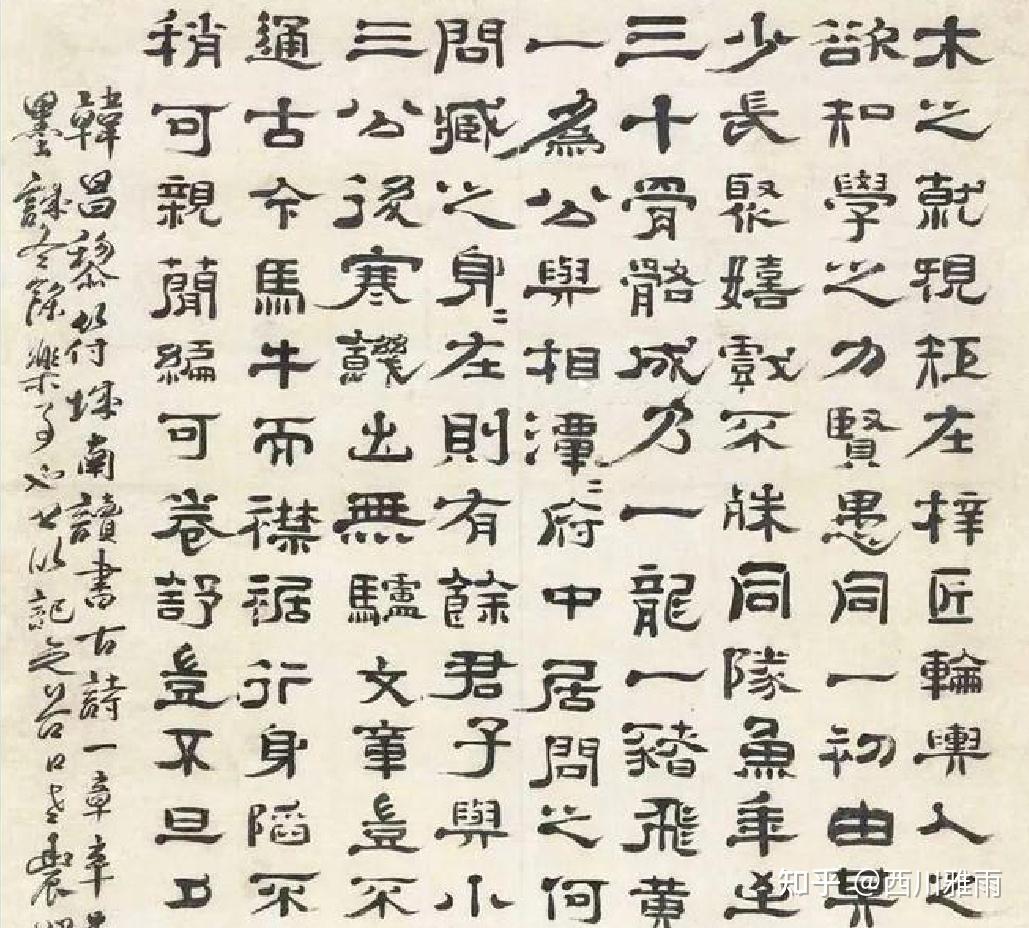 木之就規矩在梓匠輪輿人之
欲知學之力賢愚同一初由其
少長聚嬉戲不殊同隊魚年至
三十骨骼成乃一龍一豬飛黃
一為公與相潭〻府中居問之何
問臧之身〻在則有餘君子與小
三公後寒饑出無驢文章豈不
通古今馬牛而襟裾行身陷不
稍可親簡編可卷舒豈不旦
韓昌黎符城南讀書古詩一章辛
墨課冬餘樂事也書以記之谷口老農
知乎 @西川雅雨